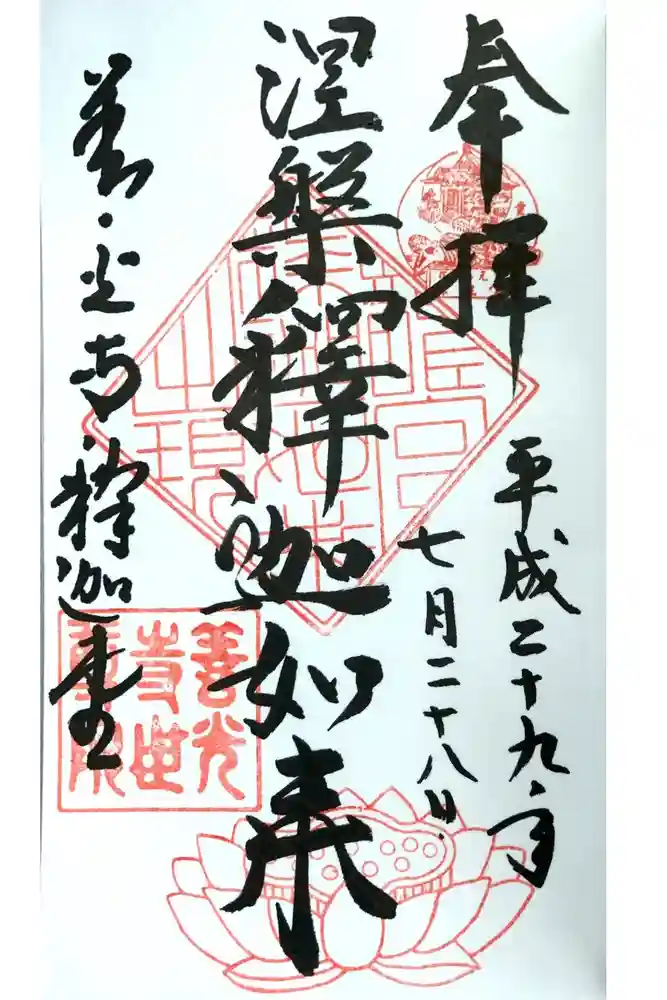 奉拝
平成二十九年
七月二十八日
涅槃釋迦如来
善光寺釋迦堂
善光
寺世